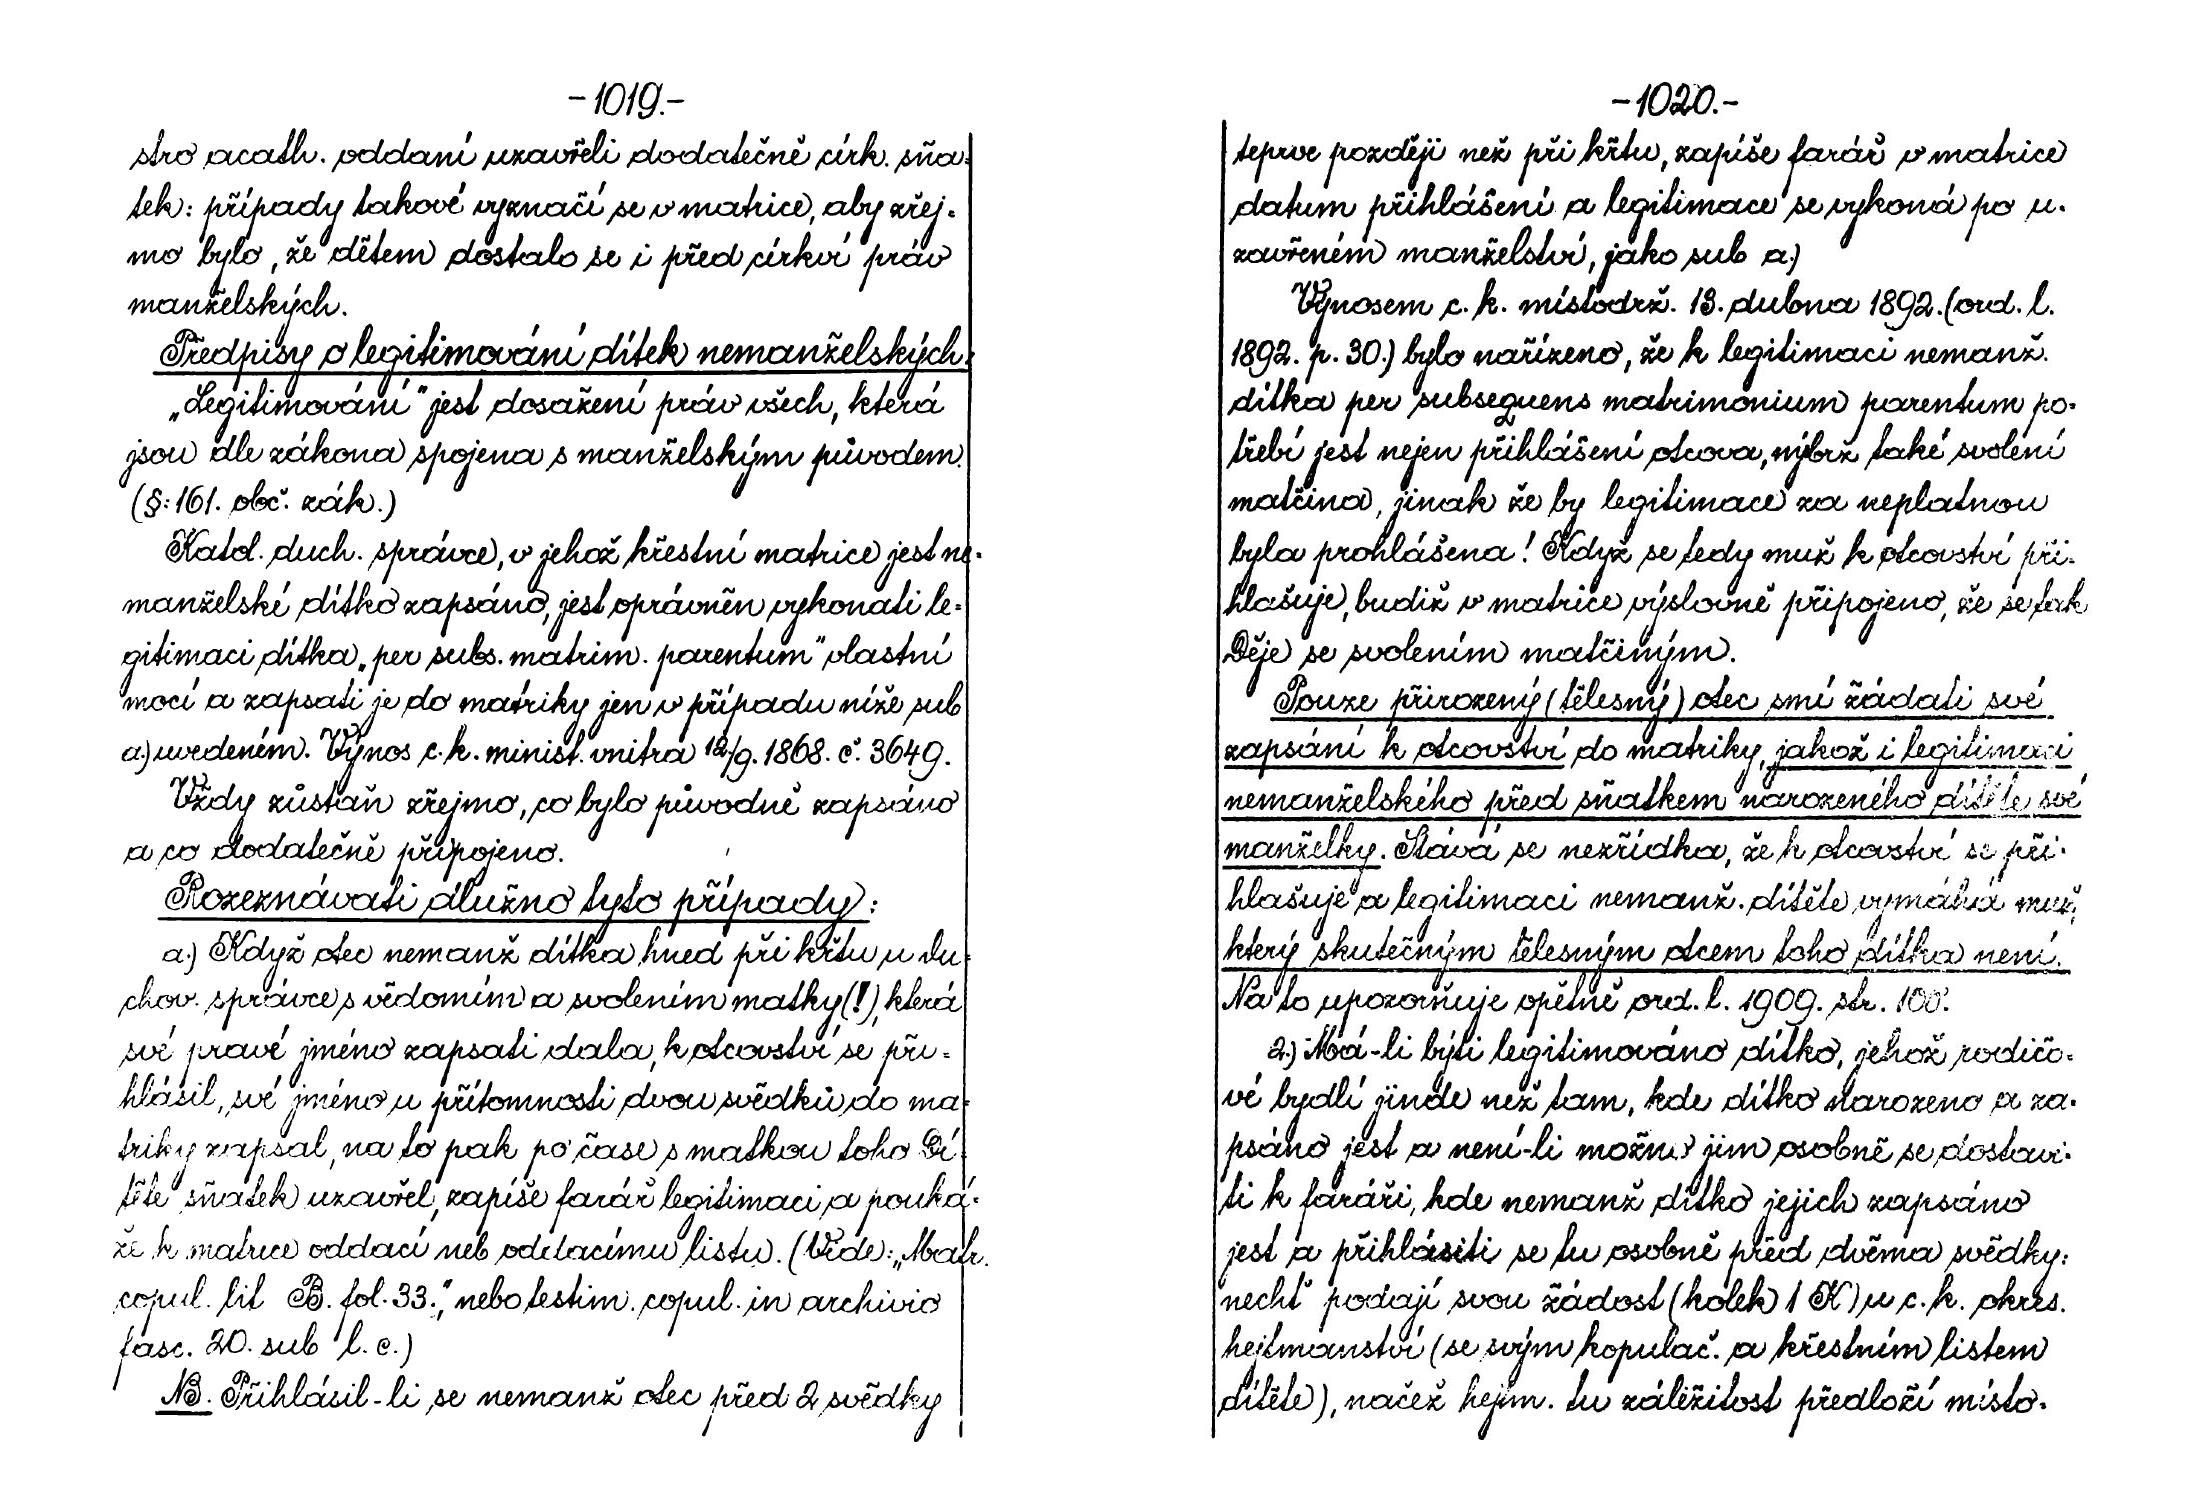 -1019.-
stro acath. oddaní uzavřeli dodatečně círk. sňa-
tek: případy takové vyznačí se v matrice, aby zřej-
mo bylo, že dětem dostalo se i před církví práv
manželských.
Předpisy o legitimování dítek nemanželských.
„Legitimování" jest dosažení práv všech, která
jsou dle zákona spojena s manželským původem.
(§: 161. obč. zák.)
Katol. duch. správce, v jehož křestní matrice jest ne-
manželské dítko zapsáno, jest oprávněn vykonati le-
gitimaci dítka „per subs. matrim. parentum" vlastní
mocí a zapsati je do matriky jen v případu níže sub
a.) uvedeném. Výnos c. k. minist. vnitra 12./9. 1868. č. 3649.
Vždy zůstaň zřejmo, co bylo původně zapsáno
a co dodatečně připojeno.
Rozeznávati dlužno tyto případy:
a.) Když otec nemanž dítka hned při křtu u du-
chov. správce s vědomím a svolením matky (!), která
své pravé jméno zapsati dala, k otcovství se při-
hlásil, své jméno u přítomnosti dvou svědků do ma-
triky zapsal, na to pak po čase s matkou toho dí-
těte sňatek uzavřel, zapíše farář legitimaci a pouká-
že k matrice oddací neb oddacímu listu. (Vide: „Matr.
copul. lit B. fol. 33.," nebo testim. copul. in archivio
fasc. 20. sub l. c.)
NB. Přihlásil-li se nemanž otec před 2 svědky
-1020.-
teprve později než při křtu, zapíše farář v matrice
datum přihlášení a legitimace se vykoná po u-
zavřeném manželství, jako sub a.)
Výnosem c. k. místodrž. 13. dubna 1892. (ord. l.
1892. p. 30.) bylo nařízeno, že k legitimaci nemanž.
dítka per subsequens matrimonium parentum po-
třebí jest nejen přihlášení otcova, nýbrž také svolení
matčina, jinak že by legitimace za neplatnou
byla prohlášena! Když se tedy muž k otcovství při-
hlašuje, budiž v matrice výslovně připojeno, že se tak
děje se svolením matčiným.
Pouze přirozený (tělesný) otec smí žádati své
zapsání k otcovství do matriky, jakož i legitimaci
nemanželského před sňatkem narozeného dítěte své
manželky. Stává se nezřídka, že k otcovství se při-
hlašuje a legitimaci nemanž. dítěte vymáhá muž,
který skutečným tělesným otcem toho dítka není.
Na to upozorňuje opětně ord. l. 1909. str. 100.
2.) Má-li býti legitimováno dítko, jehož rodičo-
vé bydlí jinde než tam, kde dítko narozeno a za-
psáno jest a není-li možno jim osobně se dostavi-
ti k faráři, kde nemanž dítko jejich zapsáno
jest a přihlásiti se tu osobně před dvěma svědky:
nechť podají svou žádost (kolek 1 K) u c. k. okres.
hejtmanství (se svým kopulač. a křestním listem
dítěte), načež hejtm. tu záležitost předloží místo-